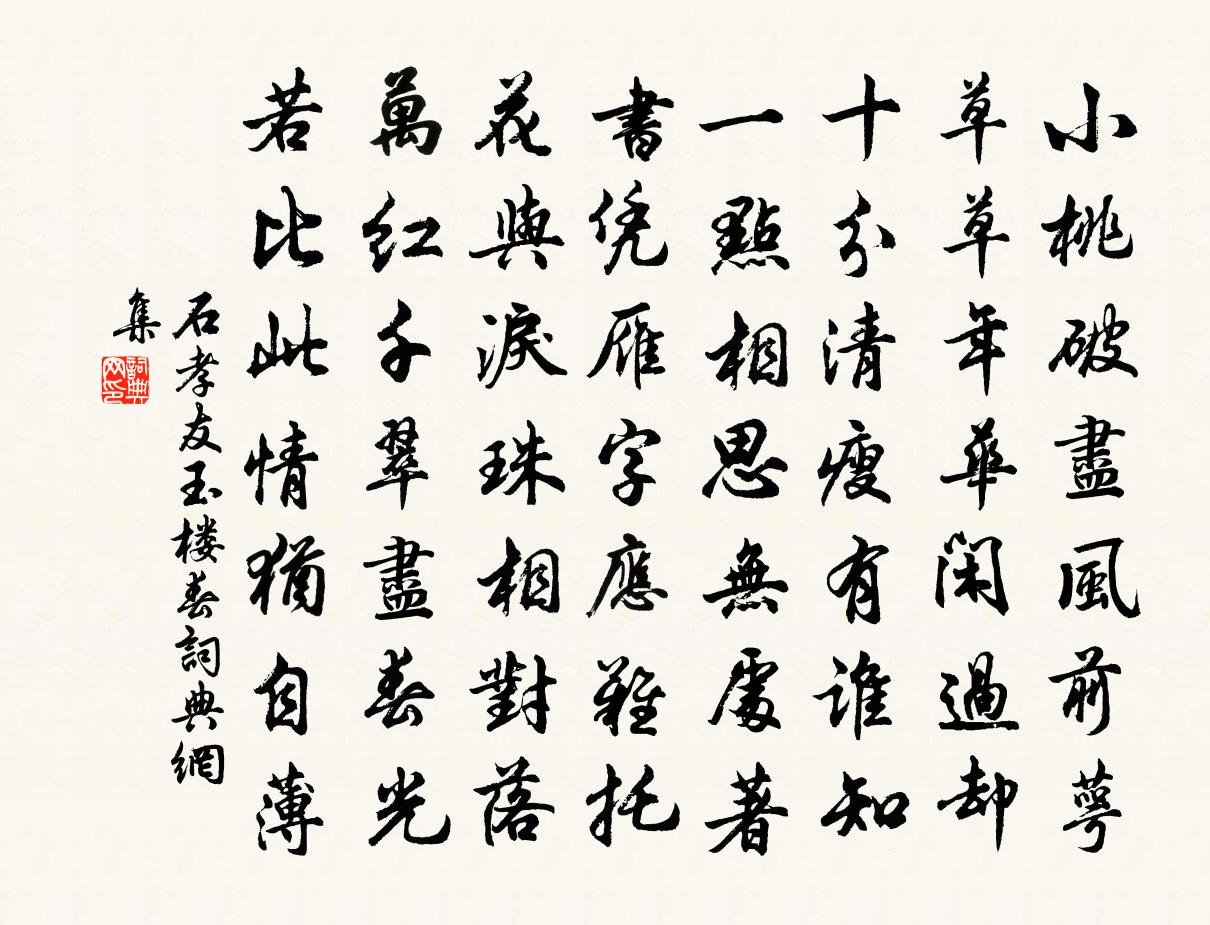 小桃破盡風前萼
草草年華閑過却
十分清瘦有誰知
一點相思無處著
書凭雁字應難托
花與淚珠相對落
萬红千翠盡春光
若比此情猶自薄
石孝友玉楼春詞典網
集
詞典网印